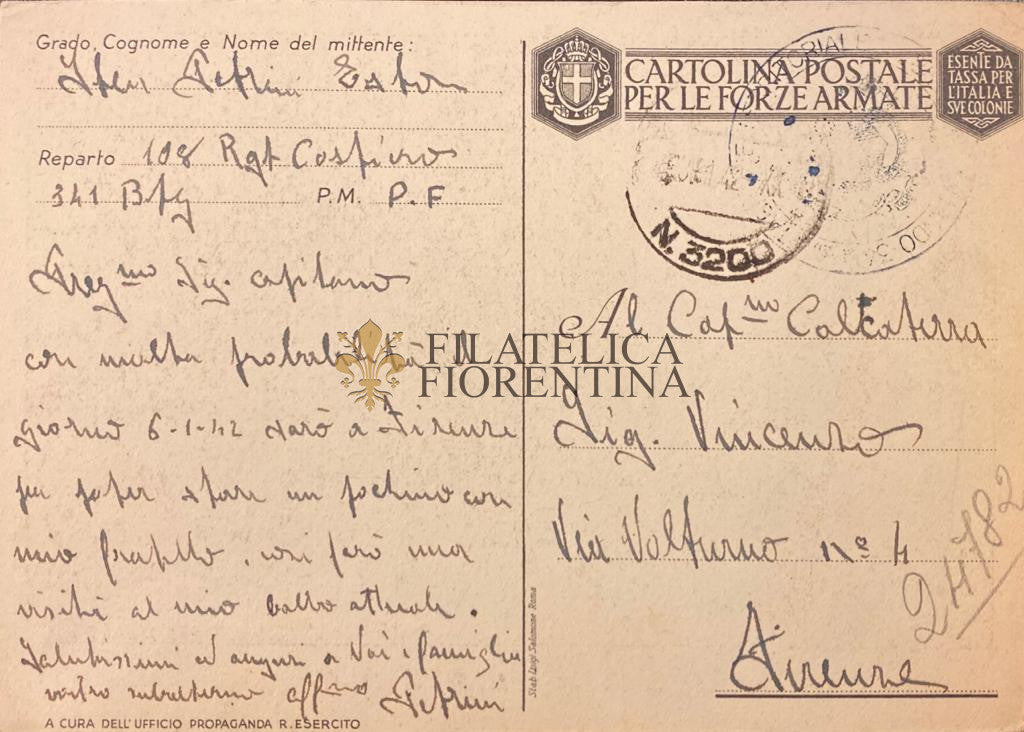 Grado, Cognome e Nome del mittente:
Petrini
Reparto 108 Rgt Costiero
341 Btg P.M. P.F
Preg.mo Sig. capitano
con molta probabilità il
giorno 6-1-42 sarò a Firenze
per poter stare un pochino con
mio fratello, così farò una
visita al mio attuale.
Salutissimi ed auguri a Voi e famiglia
vostro subalterno aff.mo Petrini
A CURA DELL'UFFICIO PROPAGANDA R. ESERCITO
CARTOLINA POSTALE
PER LE FORZE ARMATE
ESENTE DA
TASSA PER
L'ITALIA E
SVE COLONIE
N. 3200
Al Cap.no Calcaterra
Sig. Vincenzo
Via Volturno n° 4
Firenze
24782
Stab. Luigi Salomone Roma
FILATELICA
FIORENTINA